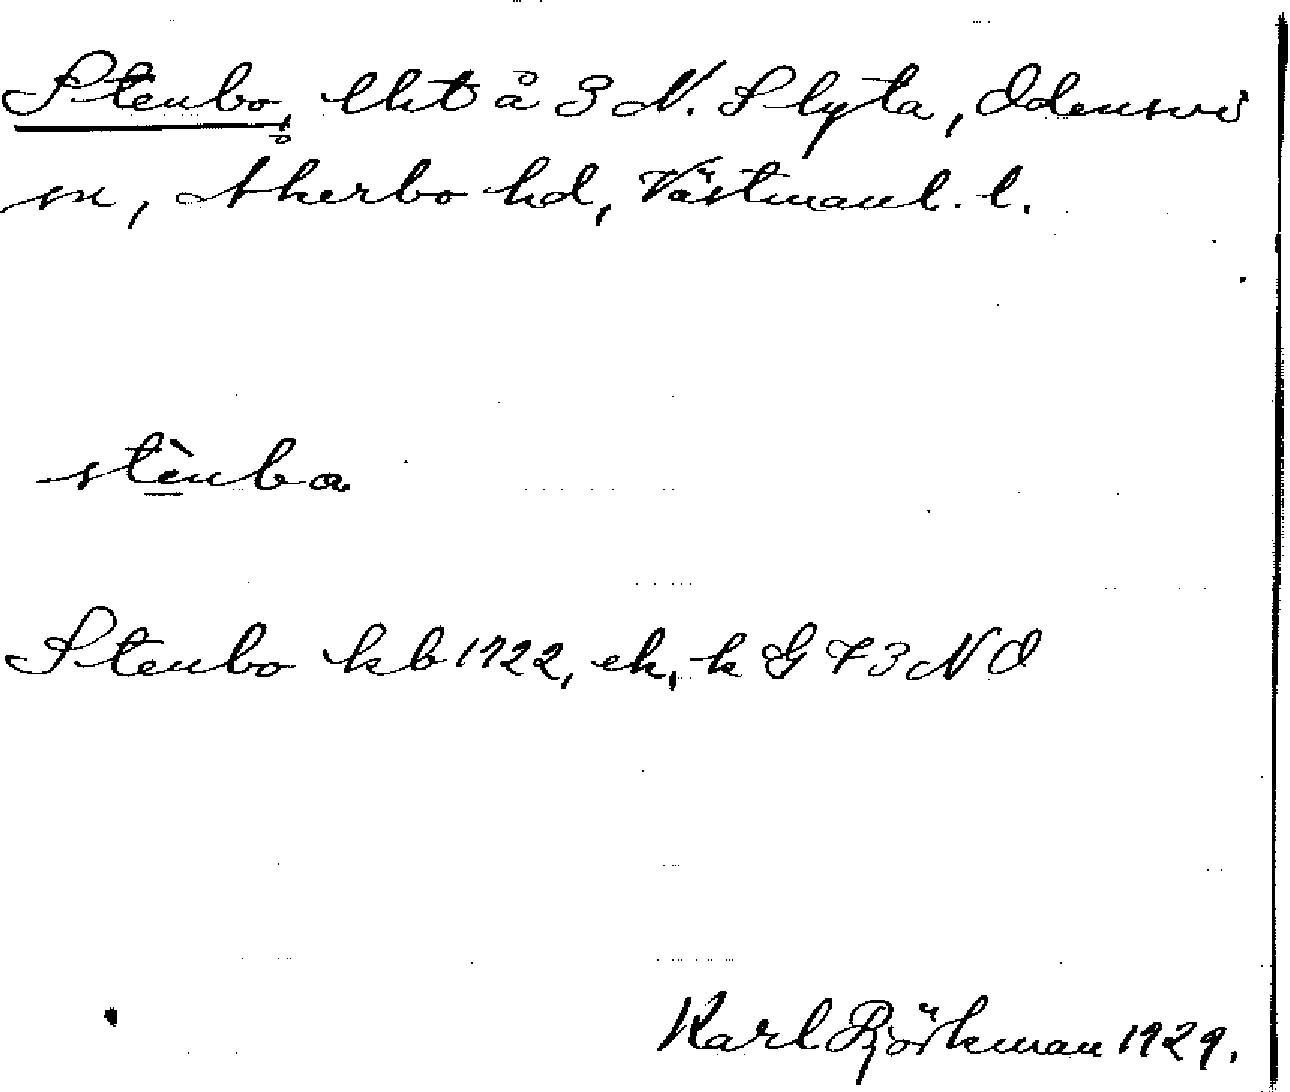 Stenbo, lht å 3 N. Slyta, Odensvi
sn, Åkerbo hd, Västmanl. l.
stènba
Stenbo kb 1722, ek, k G 73 NO
Karl Björkman 1929.